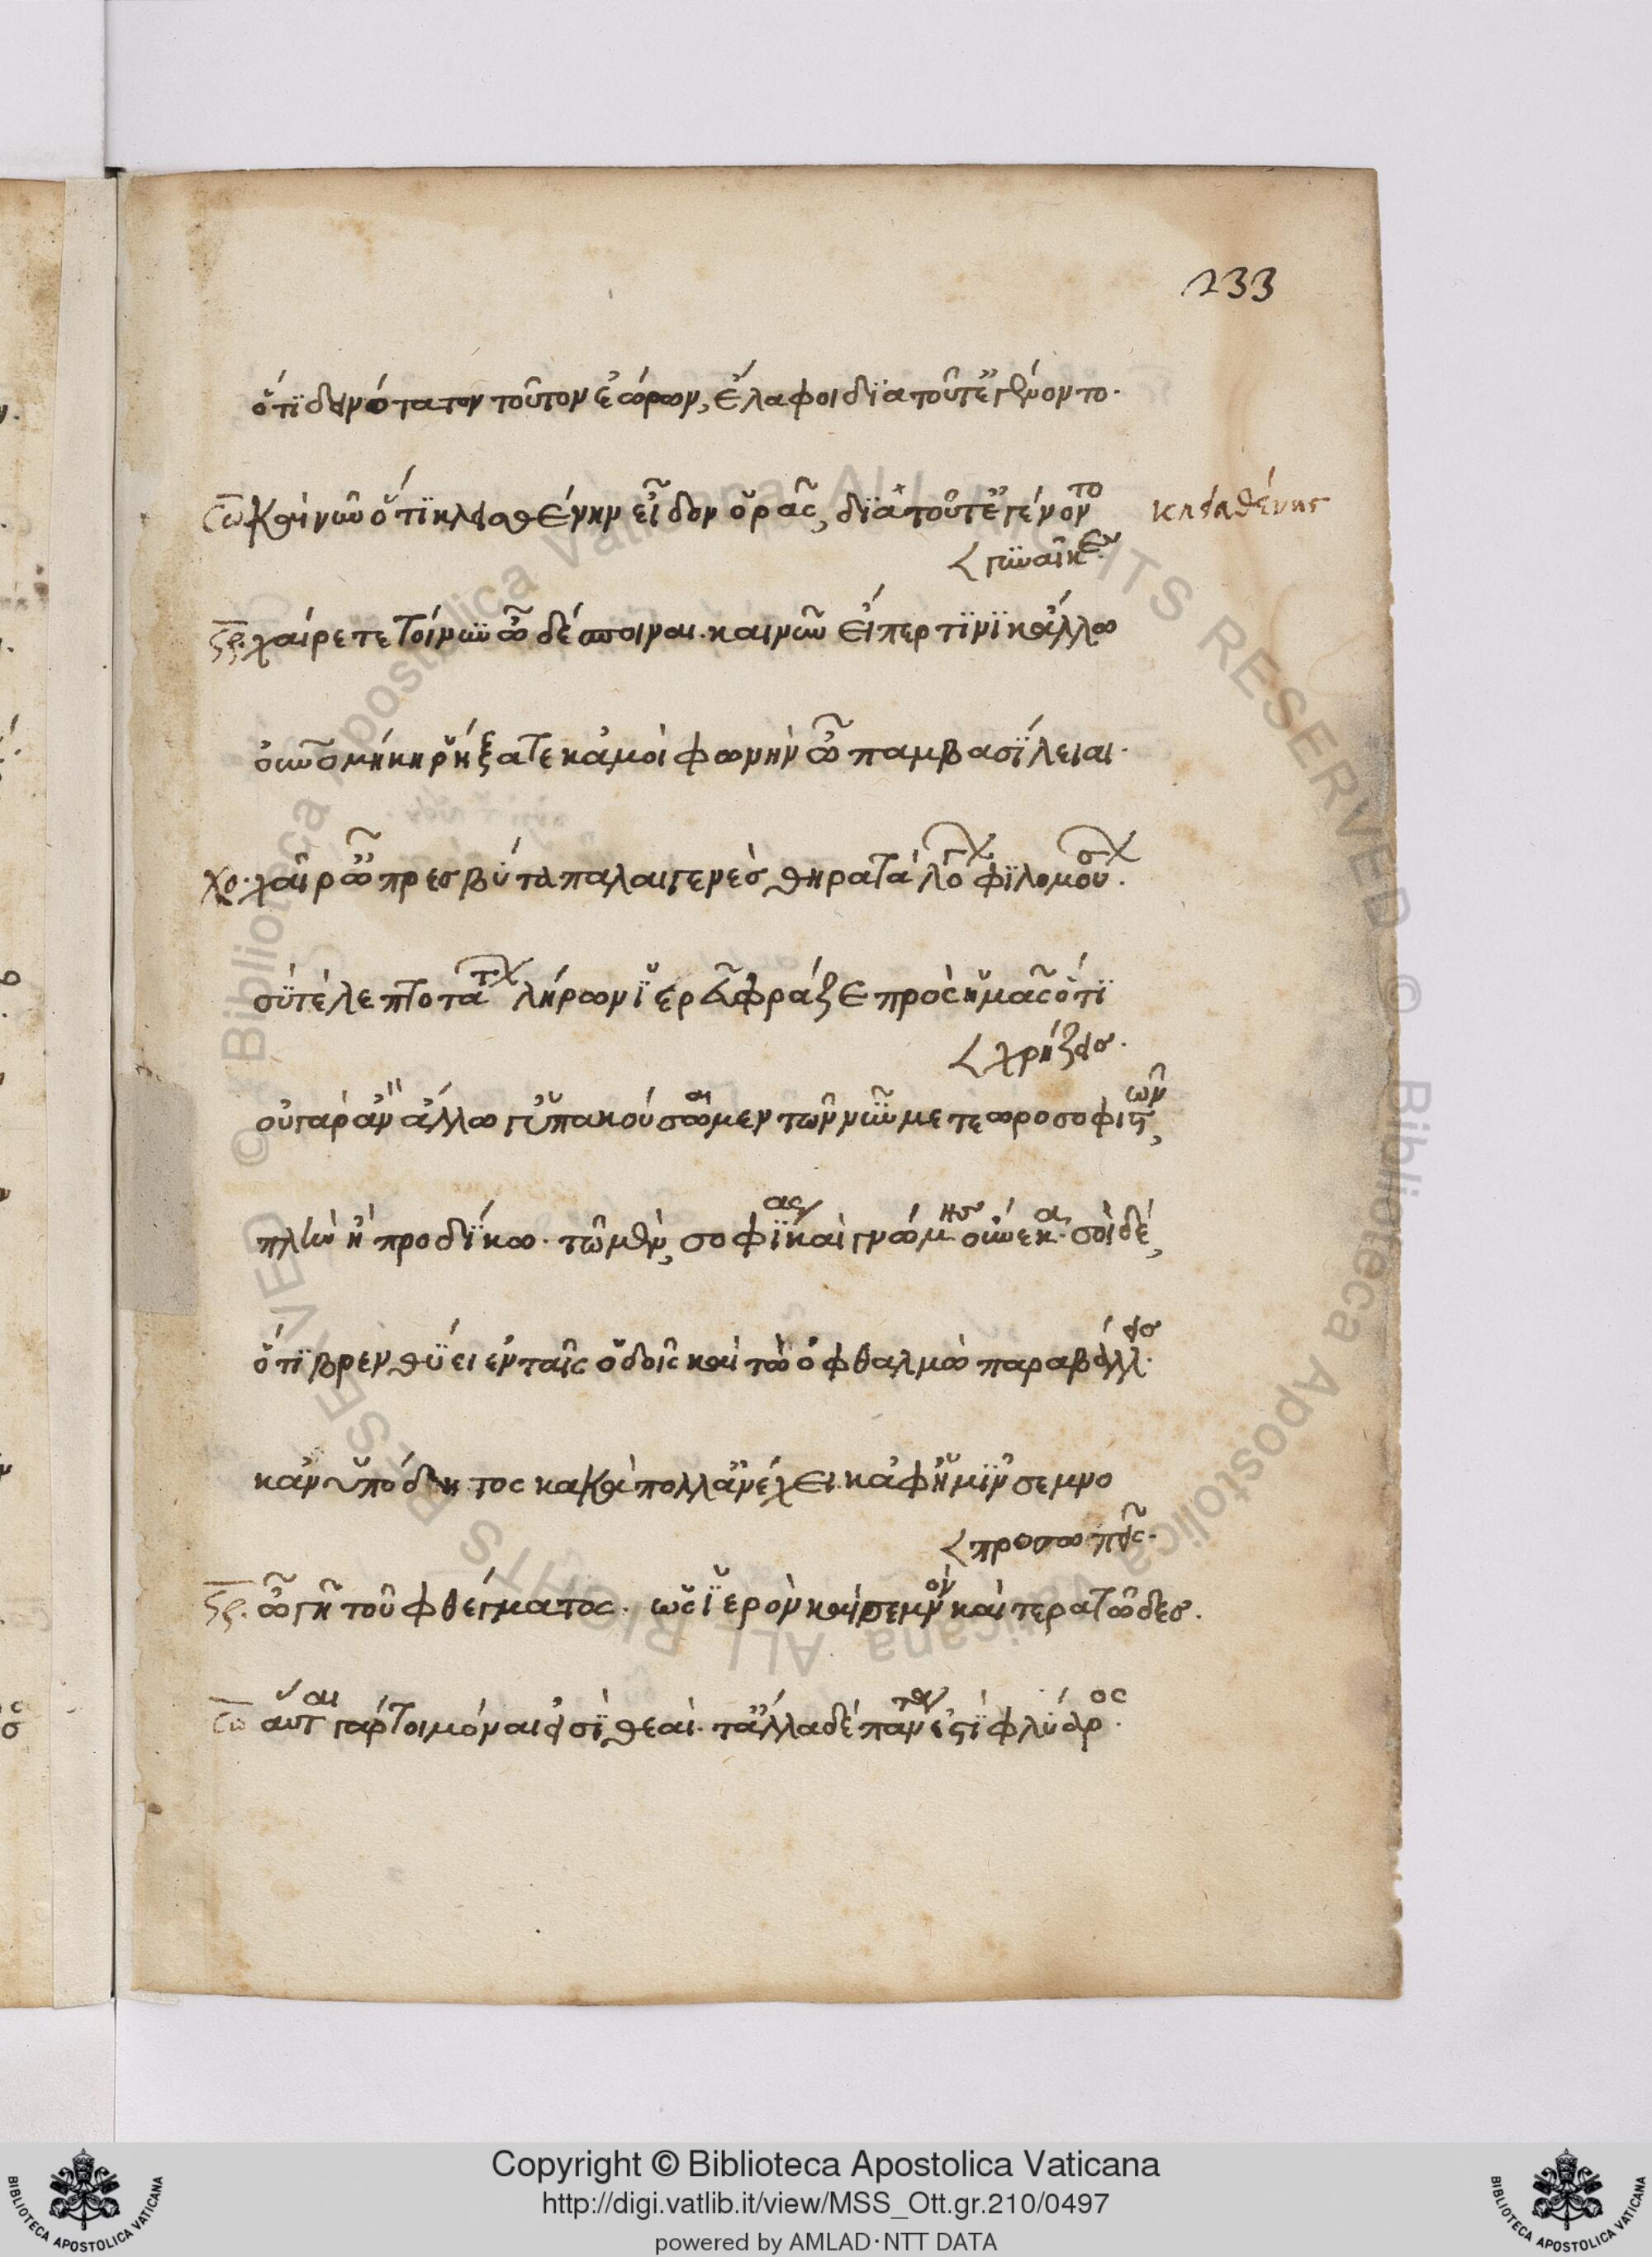 233
ὅτι δειλότατον τοῦτον ἑώρων, ἔλαφοι διατοῦτ' ἐγένοντο.
Σω καὶ νῦν ὅτι κλεισθένην εἶδον ὁρᾷς, διατοῦτ' ἐγένοντο
γυναῖκες.
κλεισθένης
Στρ. χαίρετε τοίνυν ὦ δέσποιναι. καὶ νῦν εἴπερ τινὶ κἄλλω
οὐρανομήκη ῥήξατε κἀμοὶ φωνὴν ὦ παμβασίλειαι.
χο. χαῖρ' ὦ πρεσβύτα παλαιγενὲς θηρατὰ λόγ φιλομούσ.
σύ τε λεπτοτάτ λήρων ἱερεῦ φράζε πρὸς ἡμᾶς ὅτι
χρήζεις.
οὐ γὰρ ἂν ἄλλω γ' ὑπακούσαιμεν τῶν νῦν μετεωροσοφιστῶν,
πλὴν ἢ προδίκω. τῶ μὲν, σοφίας καὶ γνώμης οὕνεκα. σοὶ δὲ,
ὅτι βρενθύει ἐν ταῖς ὁδοῖς καὶ τὼ ὀφθαλμὼ παραβάλλεις.
κἀνυπόδητος κακὰ πόλλ' ἀνέχει κἀφ' ἡμῖν σεμνο
προσωπεῖς.
Στρ. ὦ γῆ τοῦ φθέγματος. ὡς ἱερὸν καὶ σεμνὸν καὶ τερατῶδες.
Σω αὗται γάρ τοι μόναι εἰσὶ θεαί. τἄλλα δὲ πάντ' ἐστὶ φλύαρος.
Copyright © Biblioteca Apostolica Vaticana
http://digi.vatlib.it/view/MSS_Ott.gr.210/0497
powered by AMLAD·NTT DATA